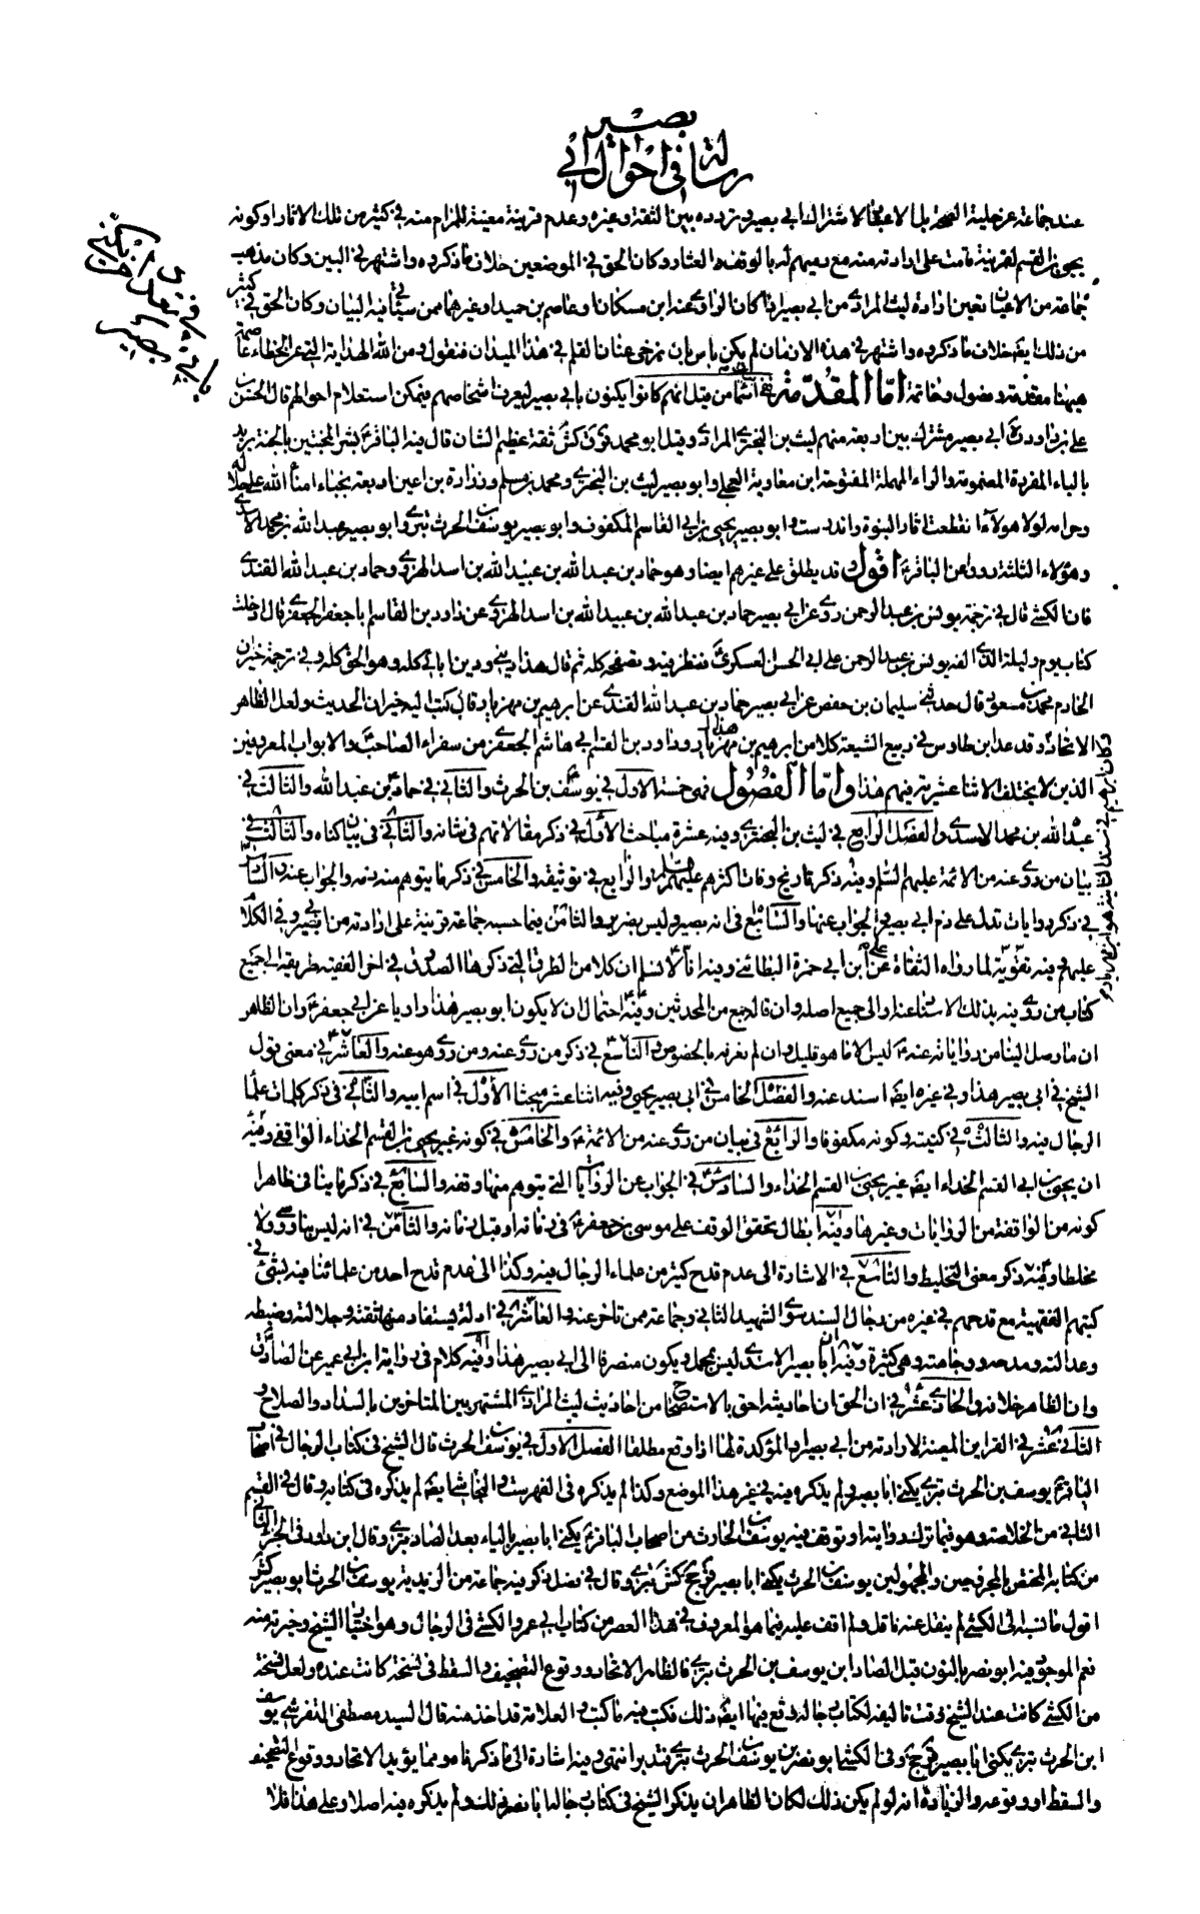 رسالة في احوال ابي بصير
عند جماعة عن حلية الصحة بل الاعتبار لاشتراك ابي بصير وتردده بين الثقة وغيره وعدم قرينة معينة للمرام منه في كثير من تلك الاثار او كونه
يحيى بن القسم لقرينة قامت على ارادته منه مع رميهم له بالوقف والعناد وكان الحق في الموضعين خلاف ما ذكروه واشتهر في البين وكان مذهب
جماعة من الاعيان تعين ارادة ليث المرادي من ابي بصير اذا كان الراوي عنه ابن مسكان او عاصم بن حميد او غيرهما ممن سياتي فيه البيان وكان الحق في كثير
من ذلك ايضا خلاف ما ذكروه واشتهر في هذه الازمان لم يكن باس بان نرخي عنان القلم في هذا الميدان فنقول ومن الله الهداية التي عن الخطاء عاصمة
ههنا مقدمة وفصول وخاتمة اما المقدمة ففي اسماء من قيل انهم كانوا يكنون بابي بصير ليعرف اشخاصهم فيمكن استعلام احوالهم قال الحسن بن
علي بن داود ره ابي بصير مشترك بين اربعة منهم ليث بن البختري المرادي وقيل ابو محمد قرق كش ثقة عظيم الشان قال فيه الباقر ع بشر المخبتين بالجنة بريد
بالباء المفردة المضمومة والراء المهملة المفتوحة ابن معاوية العجلي وابو بصير ليث بن البختري ومحمد بن مسلم وزرارة بن اعين اربعة نجباء امناء الله على حلاله
وحرامه لولا هؤلاء انقطعت اثار النبوة واندرست وابو بصير يحيى بن ابي القاسم المكفوف وابو بصير يوسف بن الحرث بتري وابو بصير عبد الله بن محمد الاسدي
وهؤلاء الثلثة رووا عن الباقر ع اقول وقد يطلق على غيرهم ايضا وهو حماد بن عبد الله بن عبيد الله بن اسد الهروي وحماد بن عبد الله القندي
فان الكشي قال في ترجمة يونس بن عبد الرحمن روى عن ابي بصير حماد بن عبد الله بن عبيد الله بن اسد الهروي عن داود بن القاسم ابا جعفر الجعفري قال ادخلت
كتاب يوم وليلة الذي الفه يونس بن عبد الرحمن على ابي الحسن العسكري ع فنظر فيه وتصفحه كله ثم قال هذا ديني ودين ابائي كله وهو الحق كله وفي ترجمة خيران
الخادم محمد بن مسعود قال حدثني سليمان بن حفص عن ابي بصير حماد بن عبد الله القندي عن ابرهيم بن مهزيار قال كتب اليه خيران الحديث ولعل الظاهر
الاتحاد وقد عد ابن طاوس في ربيع الشيعة كلا من ابرهيم بن مهزيار هذا وداود بن القسم ابي هاشم الجعفري من سفراء الصاحب ع والابواب المعروفين
الذين لا يختلف الاثنا عشرية فيهم هذا واما الفصول فهي خمسة الاول في يوسف بن الحرث والثاني في حماد بن عبد الله والثالث في
عبد الله بن محمد الاسدي والفصل الرابع في ليث بن البختري وفيه عشرة مباحث الاول في ذكر مقالاتهم في شانه والثاني في بيان كناه والثالث في
بيان من روى عنه من الائمة عليهم السلم وفيه ذكر تاريخ وفات اكثرهم عليهم السلم والرابع في توثيقه والخامس في ذكر ما يتوهم منه ذمه والجواب عنه والسادس
في ذكر روايات تدل على ذم ابي بصير والجواب عنها والسابع في انه بصير وليس بضرير والثامن فيما حسبه جماعة قرينة على ارادته من ابي بصير وفي الكلام
عليهم فيه تقوية لما رواه الثقاة عن علي بن ابي حمزة البطائني وفيه انا لا نسلم ان كلا من الطرق التي ذكرها الصدوق في اخر الفقيه طريقه الى جميع
كتاب من روى فيه بذلك الاسناد عنه او الى جميع اصله وان قاله جمع من المحدثين وفيه احتمال ان لا يكون ابو بصير هذا راويا عن ابي جعفر ع وان الظاهر
ان ما وصل الينا من رواياته عنه ع ليس الا ما هو قليل وان لم نعرفه بالخصوص والتاسع في ذكر من روى عنه ومن روى هو عنه والعاشر في معنى قول
الشيخ في ابي بصير هذا وفي غيره ايضا اسند عنه والفصل الخامس في ابي بصير يحيى وفيه اثنا عشر مبحثا الاول في اسم ابيه والثاني في ذكر كلمات علماء
الرجال فيه والثالث في كنيته وكونه مكفوفا والرابع في بيان من روى عنه من الائمة ع والخامس في كونه غير يحيى بن القسم الحذاء الواقفي وفيه
ان يحيى بن ابي القسم الحذاء ايضا غير يحيى بن القسم الحذاء والسادس في الجواب عن الروايات التي يتوهم منها وقفه والسابع في ذكر ما ينافي ظاهرا
كونه من الواقفة من الروايات وغيرها وفيه ابطال تحقق الوقف على موسى بن جعفر ع في زمانه او قبل زمانه والثامن في انه ليس بناووسي ولا
مخلطا وفيه ذكر معنى التخليط والتاسع في الاشارة الى عدم قدح كثير من علماء الرجال فيه وكذا الى عدم قدح احد من علمائنا فيه بشئ في
كتبهم الفقهية مع قدحهم في غيره من رجال السند سوى الشهيد الثاني وجماعة ممن تاخر عنه والعاشر في ادلة يستفاد منها ثقته وجلالته وضبطه
وعدالته ومدحه ووجاهته وهي كثيرة وفيه ان ابا بصير الاسدي ليس بمجمل ويكون منصرفا الى ابي بصير هذا وفيه كلام في رواية ابن ابي عمير عن الصادق ع
وان الظاهر خلافه والحادي عشر في ان الحق ان احاديثه احق بالاستصحاح من احاديث ليث المرادي المشتهر بين المتاخرين بالسداد والصلاح و
الثاني عشر في القراين المعينة لارادته من ابي بصير او المؤكدة لها اذا وقع مطلقا الفصل الاول في يوسف بن الحرث قال الشيخ في كتاب الرجال في اصحاب
الباقر ع يوسف بن الحرث بتري يكنى ابا بصير ولم يذكره فيه في غير هذا الموضع وكذا لم يذكره في الفهرست والنجاشي ايضا لم يذكره في كتابه وقال في القسم
الثاني من الخلاصة وهو فيما ترك روايته او توقف فيه يوسف بن الحارث من اصحاب الباقر ع يكنى ابا بصير بالياء بعد الصاد بتري وقال ابن داود في الجزء الثاني
من كتابه المختص بالمجروحين والمجهولين يوسف بن الحرث يكنى ابا بصير قر جخ كش بتري وقال في فصل ذكر فيه جماعة من الزيدية يوسف بن الحرث ابو بصير كش
اقول ما نسبه الى الكشي لم ينقل عنه ناقل ولم اقف عليه فيما هو المعروف في هذا العصر من كتاب ابي عمرو الكشي في الرجال وهو اختيار الشيخ وخيرته منه
نعم الموجود فيه ابو نصر بالنون قبل الصاد ابن يوسف بن الحرث بتري فالظاهر الاتحاد ووقوع التصحيف والسقط في نسخة كانت عنده ولعل نسخة
من الكشي كانت عند الشيخ وقت تاليفه لكتاب رجاله وقع فيها ايضا ذلك فكتب فيه ما كتب والعلامة قد اخذ منه قال السيد مصطفى التفرشي يوسف
ابن الحرث بتري يكنى ابا بصير قر جخ وفي الكشي ابو نصر بن يوسف بن الحرث بتري فتدبر انتهى وفيه اشارة الى ما ذكرنا ومما يؤيد الاتحاد ووقوع التصحيف
والسقط او وقوعه والزيادة انه لو لم يكن ذلك لكان الظاهر ان يذكر الشيخ في كتاب رجاله ابا نصر في ذلك ولم يذكره فيه اصلا وعلى هذا فلا